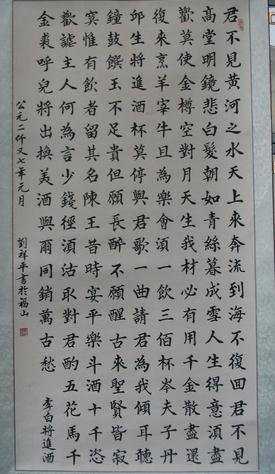 君不見黃河之水天上來奔流到海不復回君不見
高堂明鏡悲白髮朝如青絲暮成雪人生得意須盡
歡莫使金樽空對月天生我材必有用千金散盡還
復來烹羊宰牛且為樂會須一飲三百杯岑夫子丹
邱生將進酒杯莫停與君歌一曲請君為我傾耳聽
鐘鼓饌玉不足貴但願長醉不願醒古來聖賢皆寂
寞惟有飲者留其名陳王昔時宴平樂斗酒十千恣
歡謔主人何為言少錢徑須沽取對君酌五花馬千
金裘呼兒將出換美酒與爾同銷萬古愁 李白將進酒
公元二仟又七年元月 劉祥平書於福山